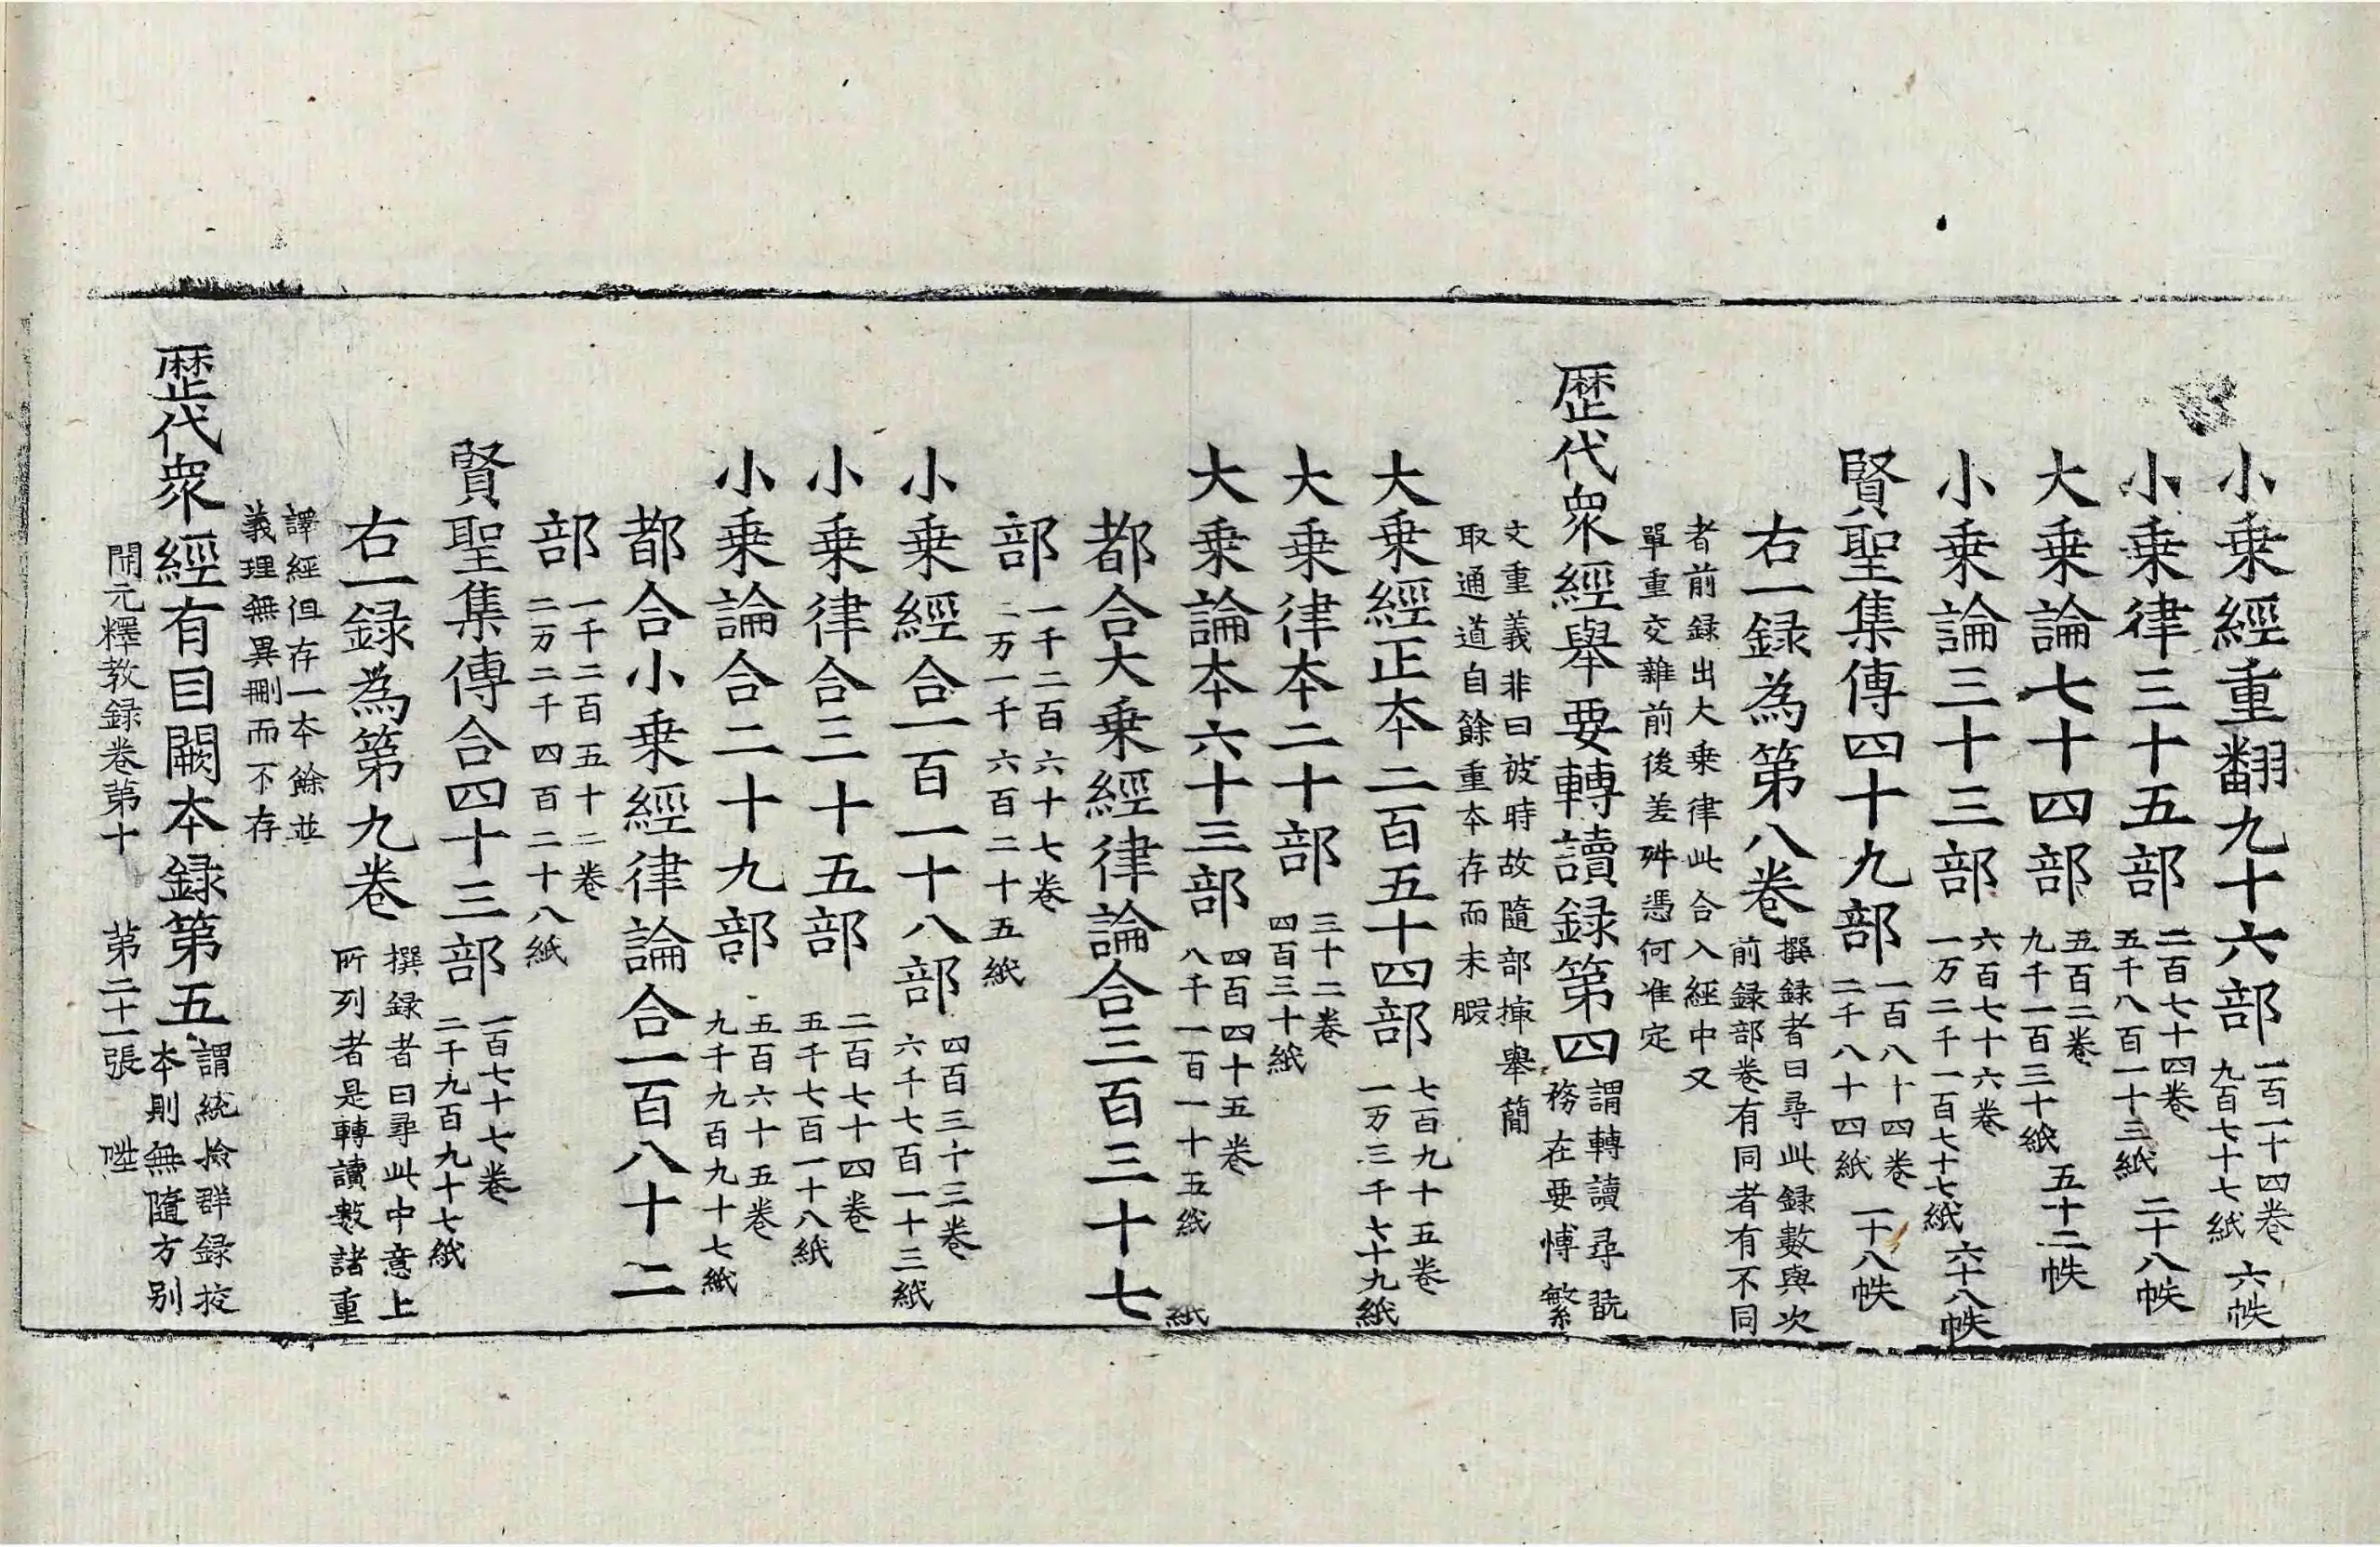 小乗經重翻九十六部 一百一十四卷 九百七十七紙 六帙
小乗律三十五部 二百七十四卷 五千八百一十三紙 二十八帙
大乗論七十四部 五百二卷 九千一百三十紙 五十二帙
小乗論三十三部 六百七十六卷 一万二千一百七十七紙 六十八帙
賢聖集傳四十九部 一百八十四卷 二千八十四紙 一十八帙
右一録為第八卷 撰録者曰尋此録數與次 前録部卷有同者有不同
者前録出大乗律此合入經中又 單重交雜前後差殊憑何准定
歷代衆經舉要轉讀録第四 謂轉讀尋翫 務在要愽繁
文重義非曰被時故隨部撮舉簡 取通道自餘重本存而未暇
大乗經正本二百五十四部 七百九十五卷 一万三千七十九紙
大乗律本二十部 三十二卷 四百三十紙
大乗論本六十三部 四百四十五卷 八千一百一十五紙
都合大乗經律論合三百三十七
部 一千二百六十七卷 二万一千六百二十五紙
小乗經合一百一十八部 四百三十三卷 六千七百一十三紙
小乗律合三十五部 二百七十四卷 五千七百一十八紙
小乗論合二十九部 五百六十五卷 九千九百九十七紙
都合小乗經律論合一百八十二
部 一千二百五十二卷 二万二千四百二十八紙
賢聖集傳合四十三部 一百七十七卷 二千九百九十七紙
右一録為第九卷 撰録者曰尋此中意上 所列者是轉讀數諸重
譯經但存一本餘並 義理無異刪而不存
歷代衆經有目闕本録第五 謂統撿群録挍 本則無隨方別
開元釋教録卷第十 第二十一張